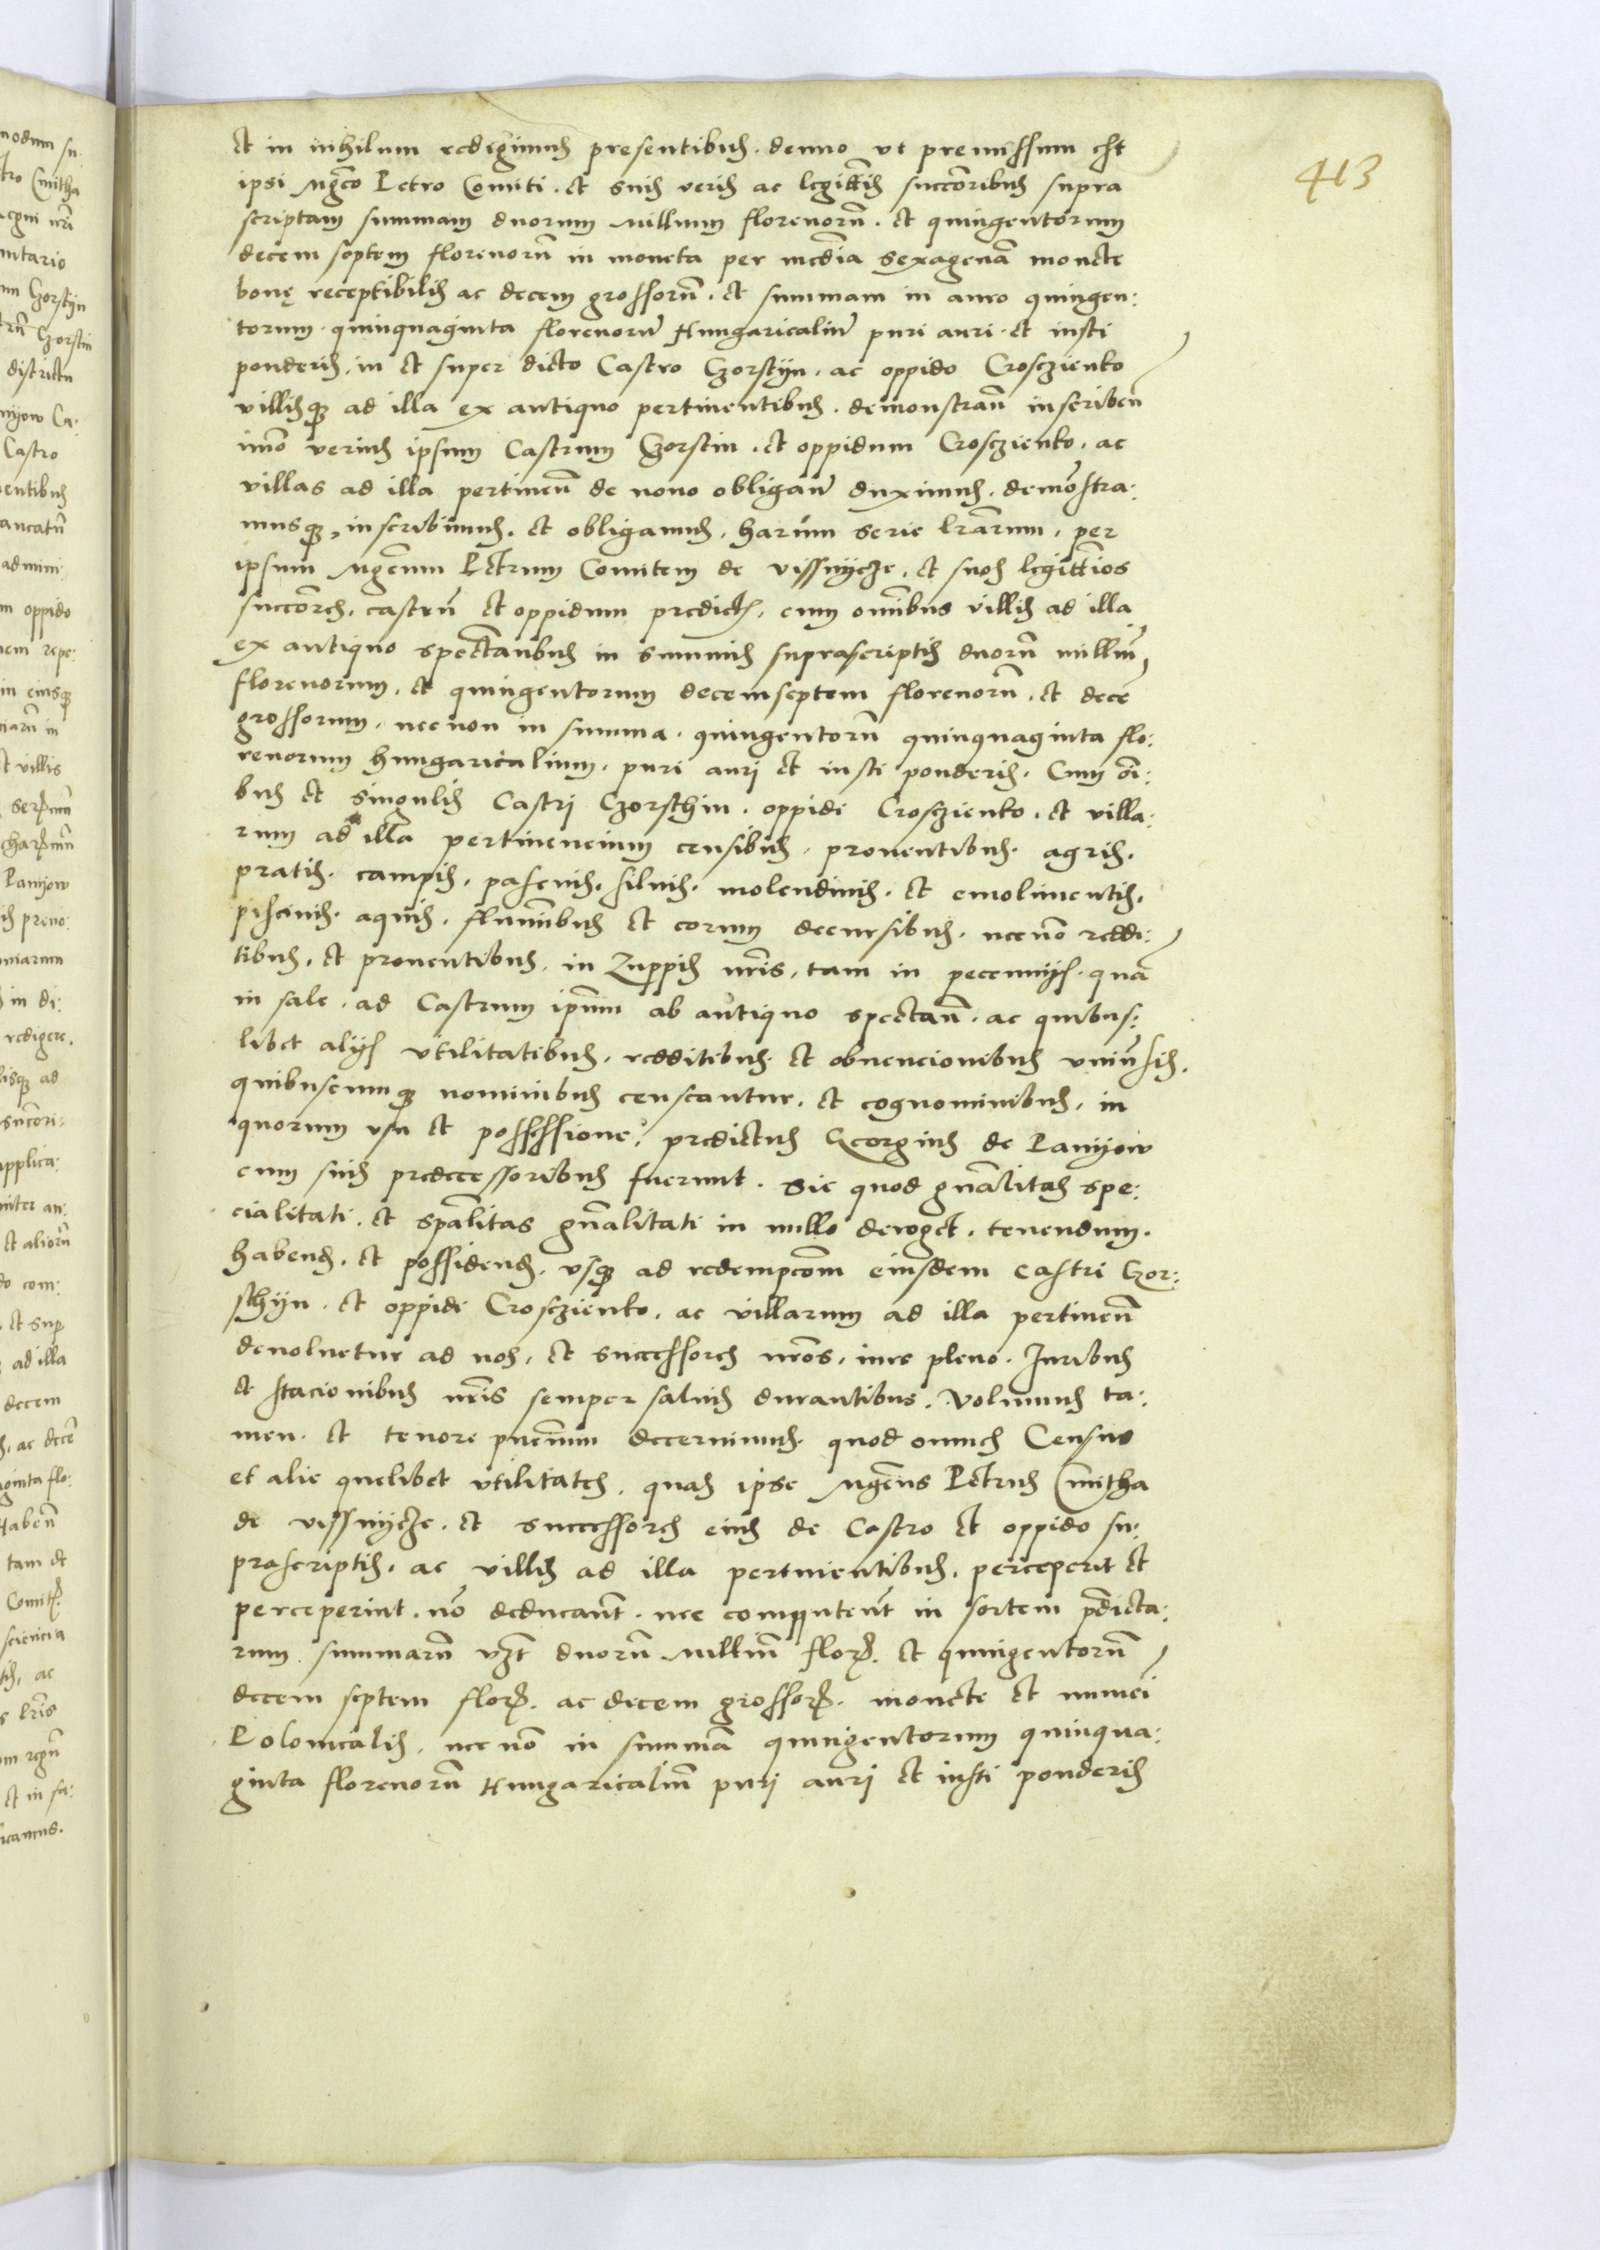 413
et in nihilum redigimus presentibus. denuo ut premissum est
ipsi Mgco Petro Comiti. et suis veris ac legittis succoribus supra
scriptam summam duorum millium florenorũ. et quingentorum
decem septem florenorũ in moneta per mediã sexagenã monete
bonę receptibilis ac decem grossorũ. et summam in auro quingen:
torum quinquaginta florenorũ Hungaricaliũ puri auri et iusti
ponderis. in et super dicto Castro Czorstijn. ac oppido Crosczienko
villisqꝫ ad illa ex antiquo pertinentibus. demonstrañ inscribeñ
imo verius ipsum Castrum Czorstin. et oppidum Crosczienko. ac
villas ad illa pertineñ de nouo obligañ duximus. demõstra:
musqꝫ, inscribimus. et obligamus. harum serie lrãrum. per
ipsum Mgcum Petrum Comitem de vissnijcze. et suos legittios
succores. castrũ et oppidum predict. cum omibus villis ad illa
ex antiquo spectantibus in summis suprascriptis duorũ milliũ
florenorum. et quingentorum decemseptem florenorũ. et decẽ
grossorum. necnon in summa. quingentorũ quinquaginta flo:
renorum hungaricalium. puri auri et iusti ponderis. Cum oĩ:
bus et singulis Castri Czorschin. oppidi Crosczienko. et villa:
rum ad illa pertinencium censibus. prouentibus. agris.
pratis. campis. pascuis. siluis. molendinis. et emolimentis.
piscinis. aquis. fluminibus et eorum decursibus. necnõ reddi:
tibus. et prouentibus. in Zuppis nris. tam in pecunijs. quã
in sale. ad Castrum ipsum ab antiquo spectañ. ac quibus:
libet alijs utilitatibus. redditibus et obuencionibus uniũsis.
quibuscumqꝫ nominibus censeantur. et cognominibus. in
quorum usu et possessione. predictus Georgius de Panijow
cum suis predecessoribus fuerunt. Sic quod gnãlitas spe:
cialitati. et spãlitas gnãlitati in nullo deroget. tenendum.
habend. et possidend. usqꝫ ad redempcom eiusdem castri Czor:
schijn. et oppidi Crosczienko. ac villarum ad illa pertineñ
deuoluetur ad nos. et successores nros. iure pleno. Juribus
et stacionibus nris semper saluis durantibus. Volumus ta:
men. et tenore pñcium decernimus. quod omnes Census
et alie quelibet utilitates. quas ipse Mgcus Petrus Cmitha
de vissnijcze. et successores eius de Castro et oppido su:
prascriptis. ac villis ad illa pertinentibus. perceperit et
perceperint. nõ deducant. nec computent in sortem pdicta:
rum summarũ vzt duorũ milliũ florꝫ. et quingentorũ
decem septem florꝫ. ac decem grossorꝫ. monete et numeri
Polonicalis. necnõ in summã quingentorum quinqua:
ginta florenorũ Hungaricaliũ puri auri et iusti ponderis